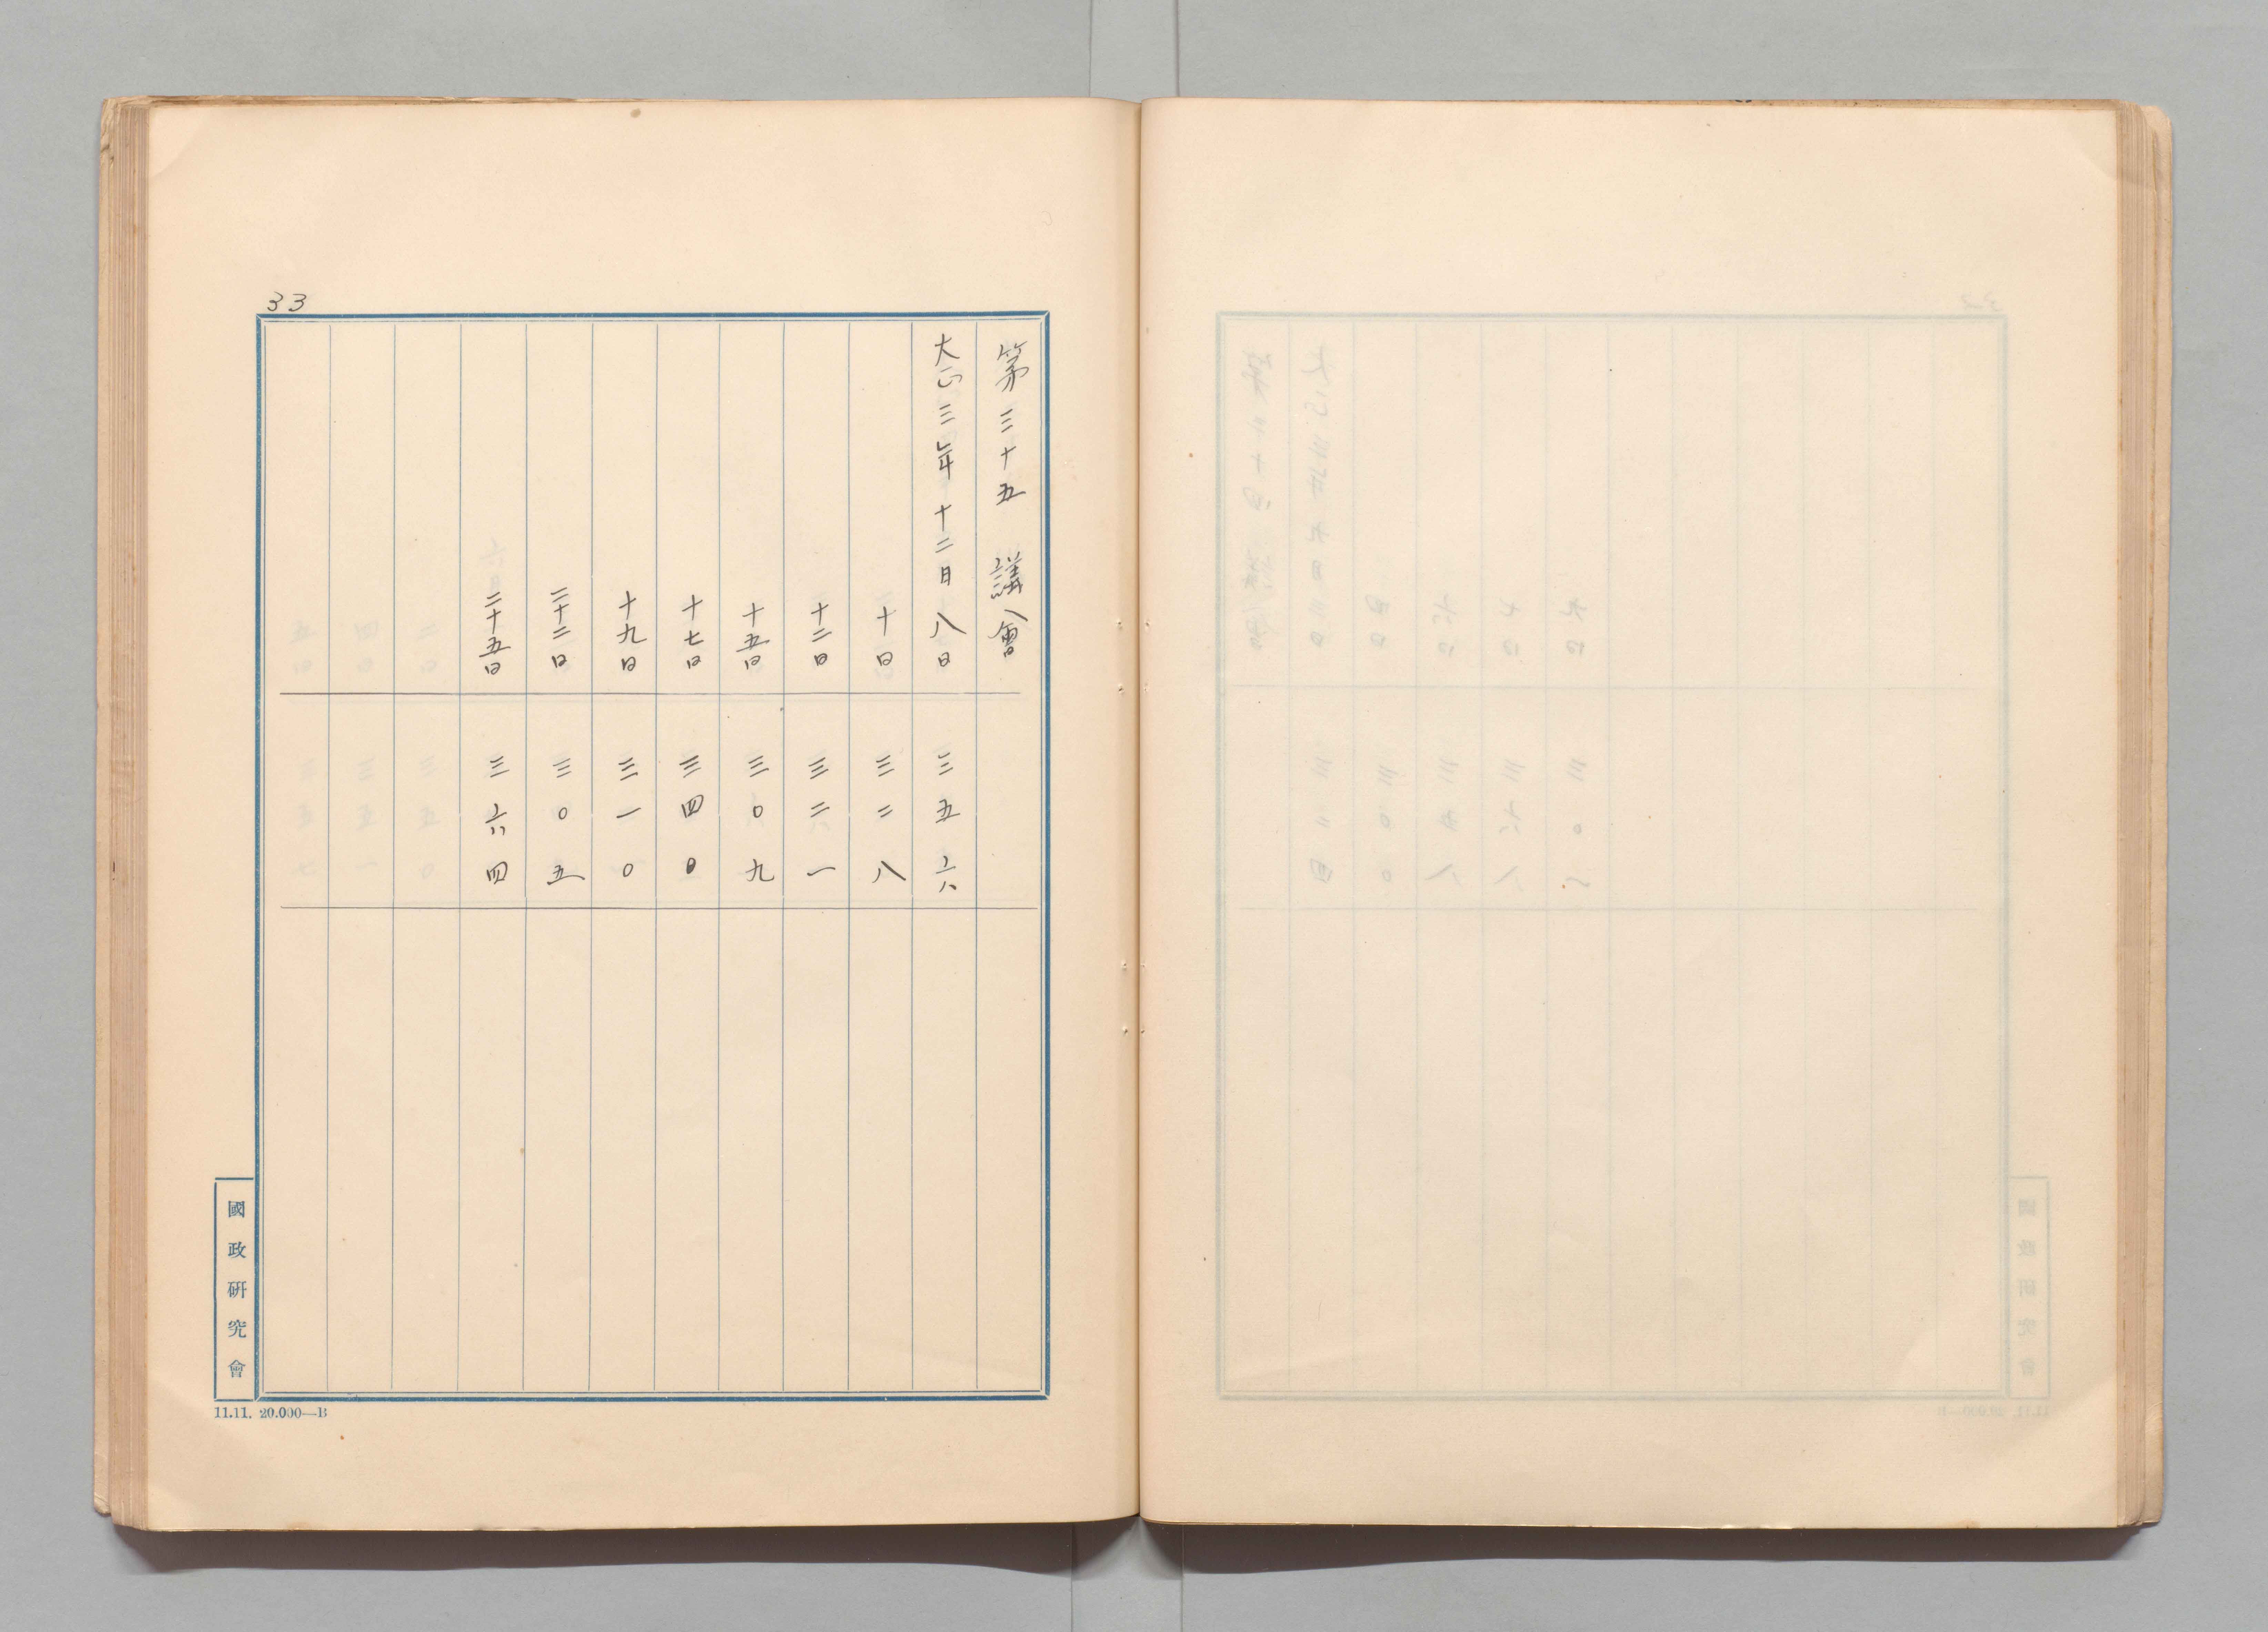 33
第三十五 議會
大正三年十二月八日 三五六
十日 三二八
十二日 三二一
十五日 三〇九
十七日 三四〇
十九日 三一〇
二十二日 三〇五
二十五日 三六四
國政研究會
11.11. 20.000—B